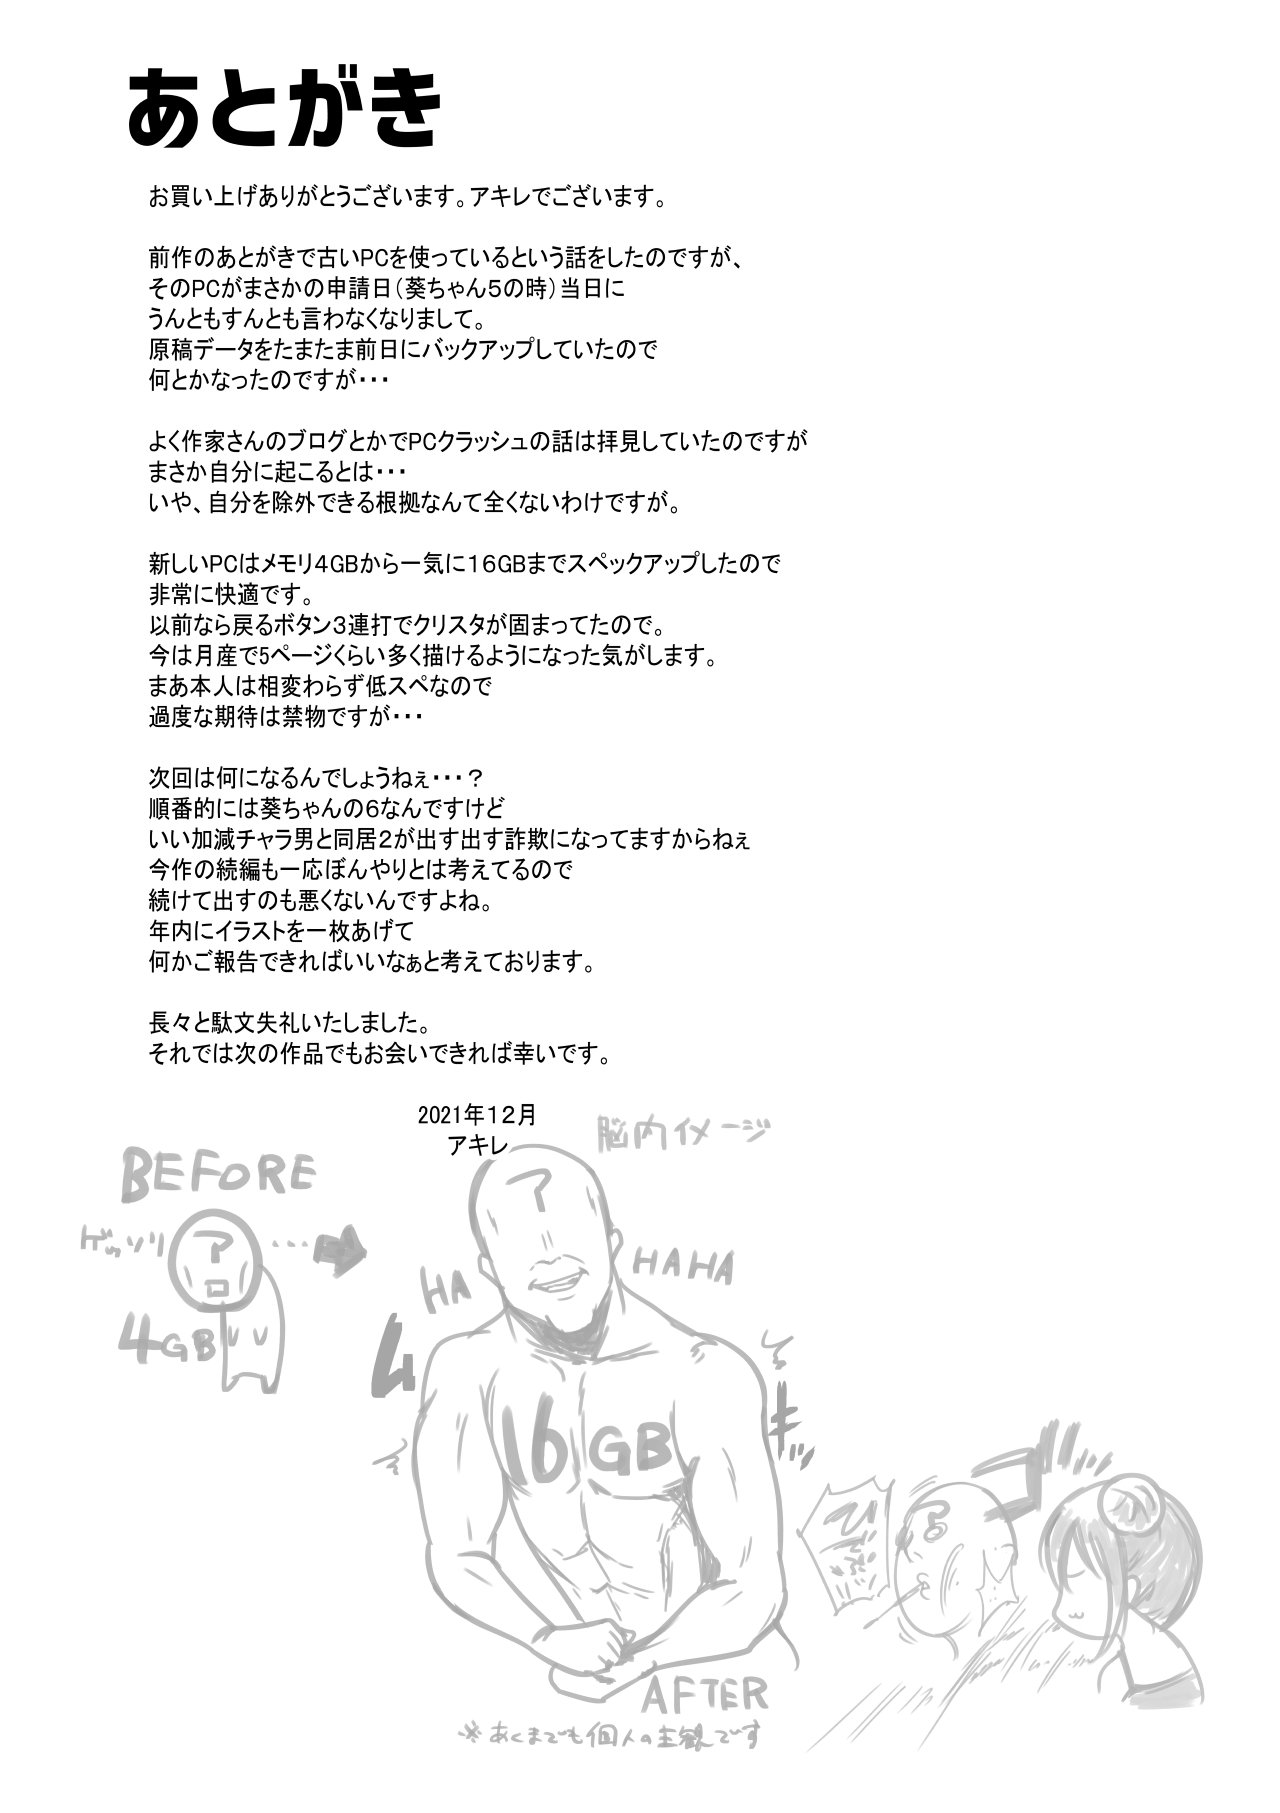 あとがき
お買い上げありがとうございます。アキレでございます。
前作のあとがきで古いPCを使っているという話をしたのですが、
そのPCがまさかの申請日（葵ちゃん5の時）当日に
うんともすんとも言わなくなりまして。
原稿データをたまたま前日にバックアップしていたので
何とかなったのですが・・・
よく作家さんのブログとかでPCクラッシュの話は拝見していたのですが
まさか自分に起こるとは・・・
いや、自分を除外できる根拠なんて全くないわけですが。
新しいPCはメモリ4GBから一気に16GBまでスペックアップしたので
非常に快適です。
以前なら戻るボタン3連打でクリスタが固まってたので。
今は月産で5ページくらい多く描けるようになった気がします。
まあ本人は相変わらず低スペなので
過度な期待は禁物ですが・・・
次回は何になるんでしょうねぇ・・・？
順番的には葵ちゃんの6なんですけど
いい加減チャラ男と同居2が出す出す詐欺になってますからねぇ
今作の続編も一応ぼんやりとは考えてるので
続けて出すのも悪くないんですよね。
年内にイラストを一枚あげて
何かご報告できればいいなぁと考えております。
長々と駄文失礼いたしました。
それでは次の作品でもお会いできれば幸いです。
2021年12月
アキレ
脳内イメージ
BEFORE
ゲッソリ
ア
・・・
4GB
ア
HA
HAHA
ムキッ
16GB
AFTER
※あくまでも個人の主観です